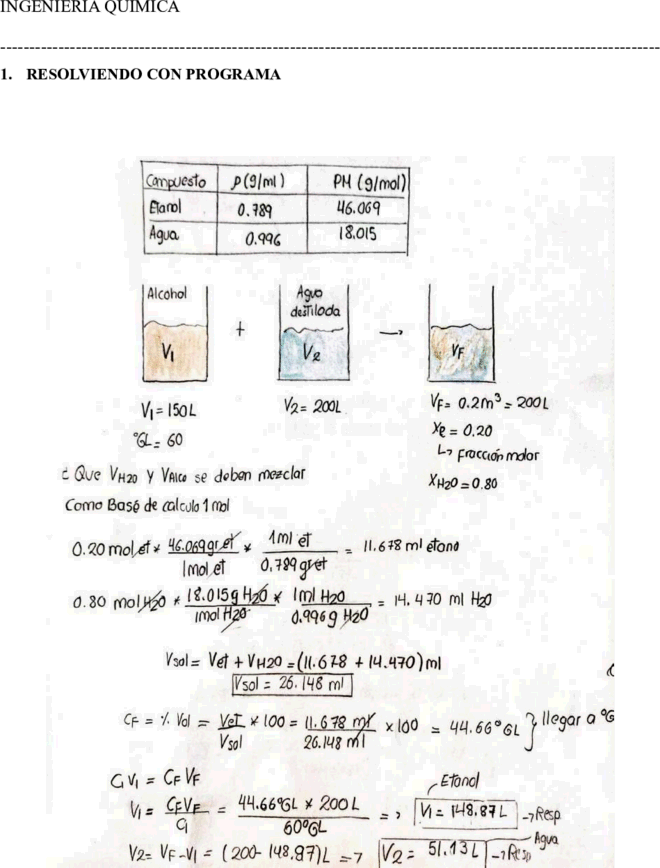 INGENIERÍA QUÍMICA
1. RESOLVIENDO CON PROGRAMA
Compuesto ρ(g/ml) PM (g/mol)
Etanol 0.789 46.069
Agua 0.996 18.015
Alcohol Agua
destilada
V1 + V2 → VF
V1= 150L V2= 200L VF= 0.2m³ = 200L
°GL= 60 Xe = 0.20
↳ Fracción molar
¿ Que VH2O Y VAlco se deben mezclar XH2O = 0.80
Como Base de calculo 1 mol
0.20 mol et * 46.069gr et / 1mol et * 1ml et / 0.789 gr et = 11.678 ml etano
0.80 mol H2O * 18.015g H2O / 1mol H2O * 1ml H2O / 0.996g H2O = 14.470 ml H2O
Vsol = Vet + VH2O = (11.678 + 14.470)ml
Vsol = 26.148 ml
CF = % Vol = Vet / Vsol * 100 = 11.678 ml / 26.148 ml x 100 = 44.66° GL } llegar a °G
Ci V1 = CF VF
Etanol
V1 = CFVF / Ci = 44.66°GL x 200L / 60°GL => V1 = 148.87L → Resp
Agua
V2= VF-V1 = (200-148.87)L => V2 = 51.13L → Resp